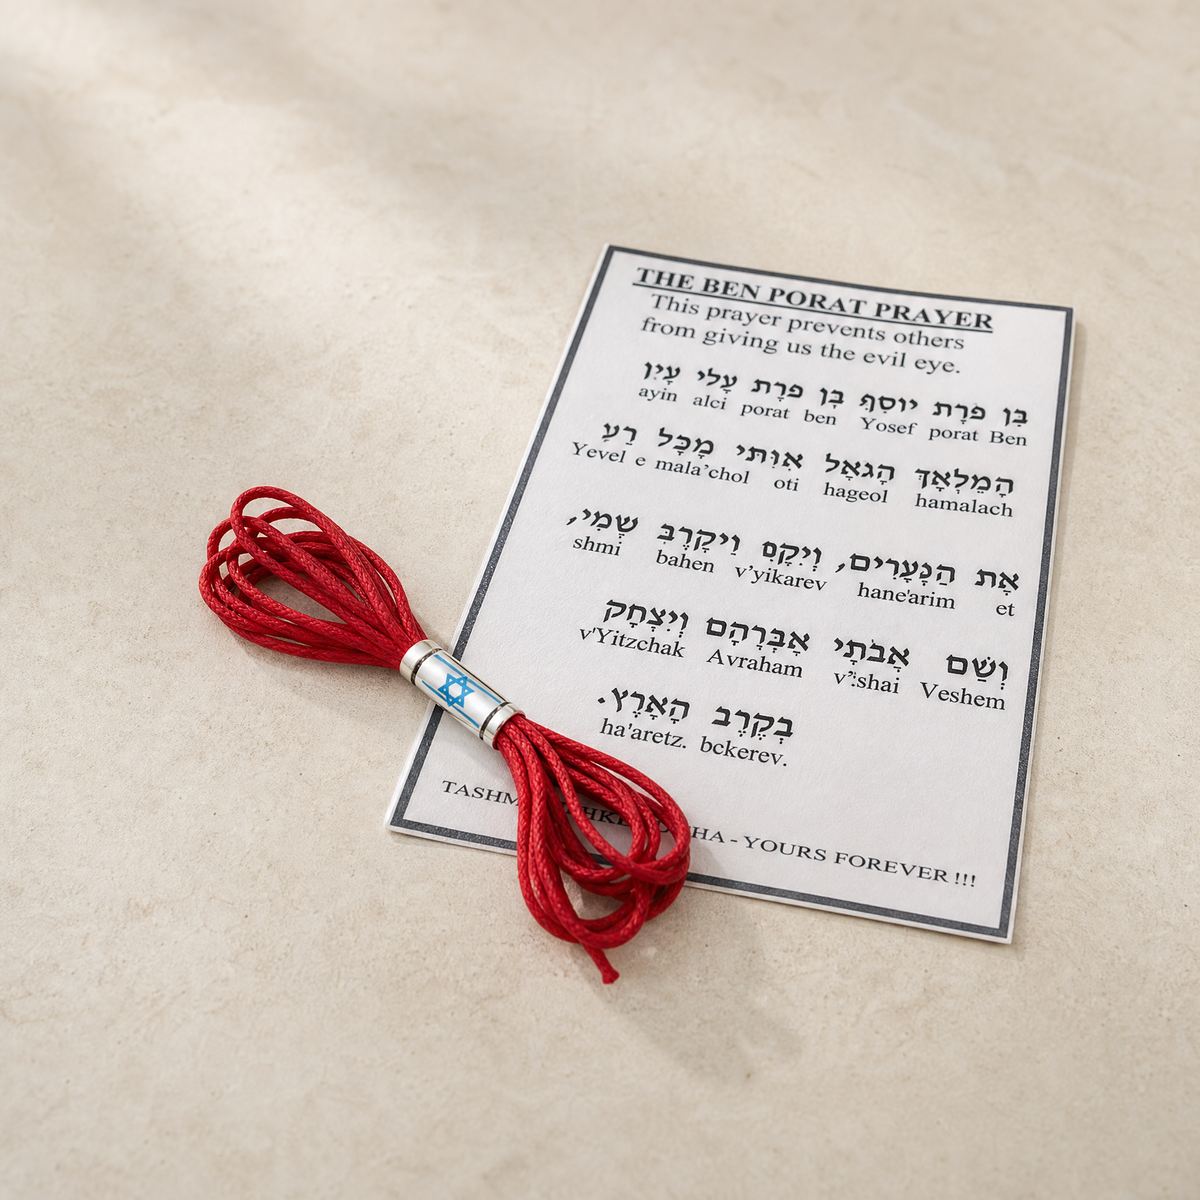 THE BEN PORAT PRAYER
This prayer prevents others
from giving us the evil eye.
בָּן פֹּרָת יוֹסִףּ בָּן פֹּרָת עָלי עָיִן
ayin alci porat ben Yosef porat Ben
הָמֵלְאָךְ הָגּאָל אוֹתי מָכָּל רַעָ
Yevel e mala'chol oti hageol hamalach
אָת הַנָּעָרִים, וְיִקָּם וַיקָרֶבּ שְׁמִי,
shmi bahen v'yikarev hane'arim et
וְשַּׁם אֲבֹתָי אָבְּרָהָם וְיִצְחָק
v'Yitzchak Avraham v':shai Veshem
בְּקֶרֶב הָאָרֶץ.
ha'aretz. bckerev.
- YOURS FOREVER !!!